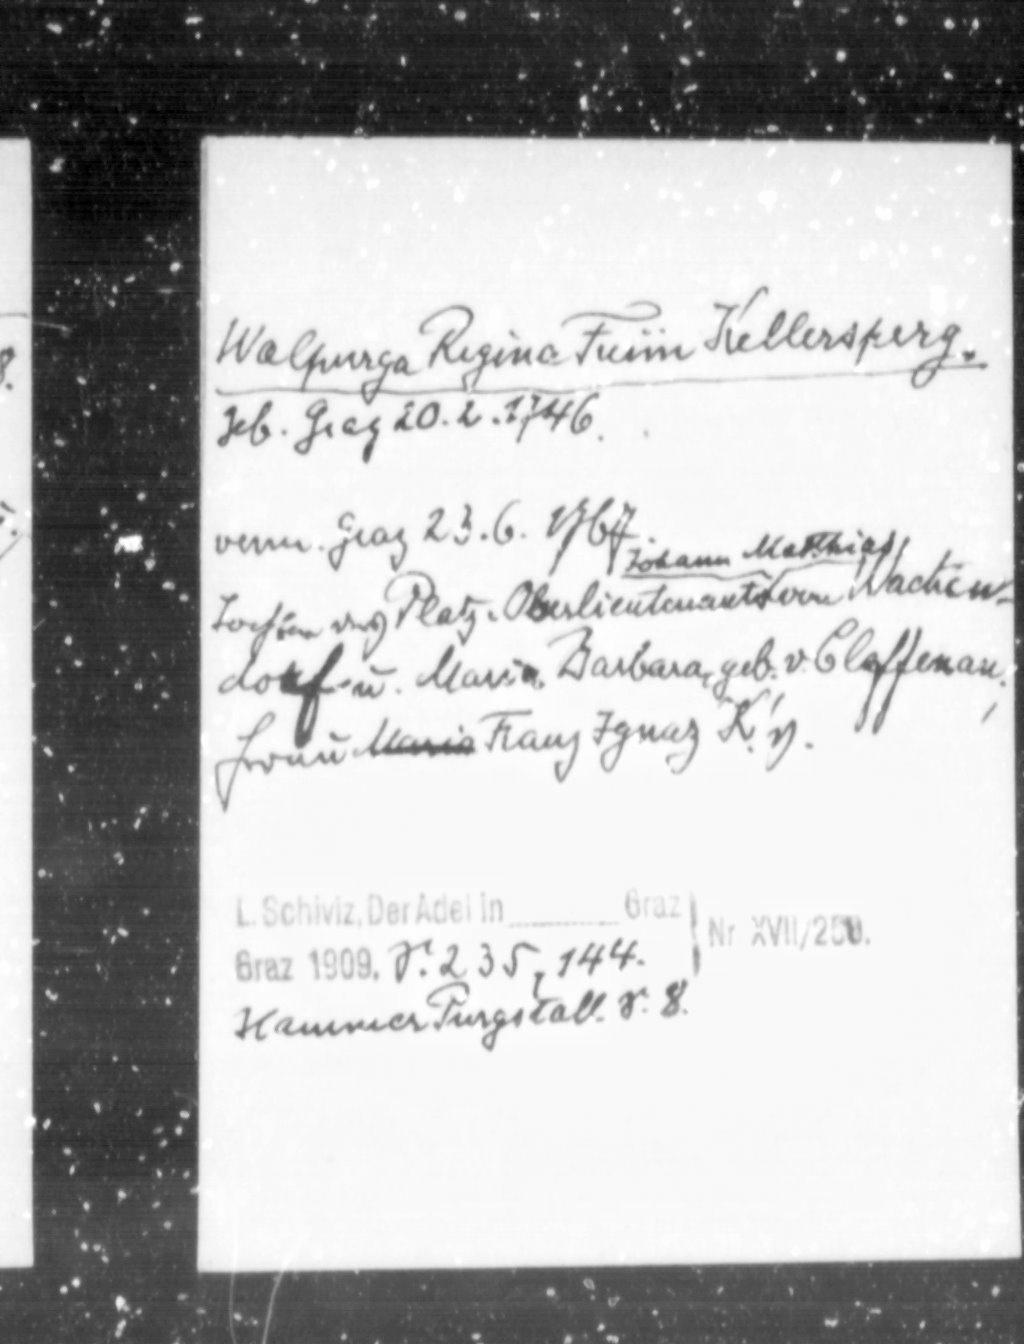 Walpurga Regina Freiin Kellersperg.
geb. Graz 20.2.1746.
verm. Graz 23.6.1767.
Johann Matthias
Tochter des Platz-Oberlieutenants von Wachten-
dorf u. Maria Barbara, geb. v. Claffenau,
Frau Maria Franz Ignaz K.'s.
L. Schiviz, Der Adel in ________ Graz
Graz 1909. S. 235, 144.
Nr XVII/250.
Hammer Purgstall. S. 8.
8.